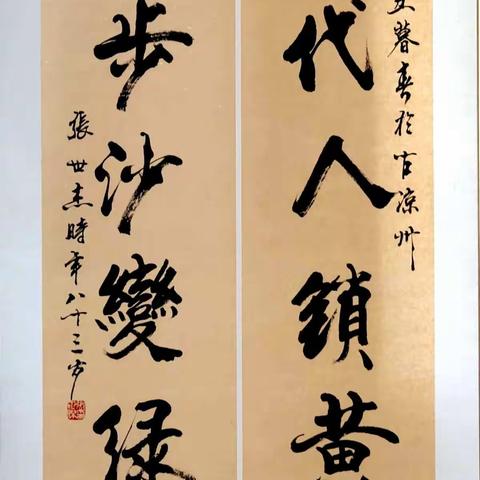 暮春於古涼州
代人鎖黄
步沙變緑
張世杰時年八十三岁